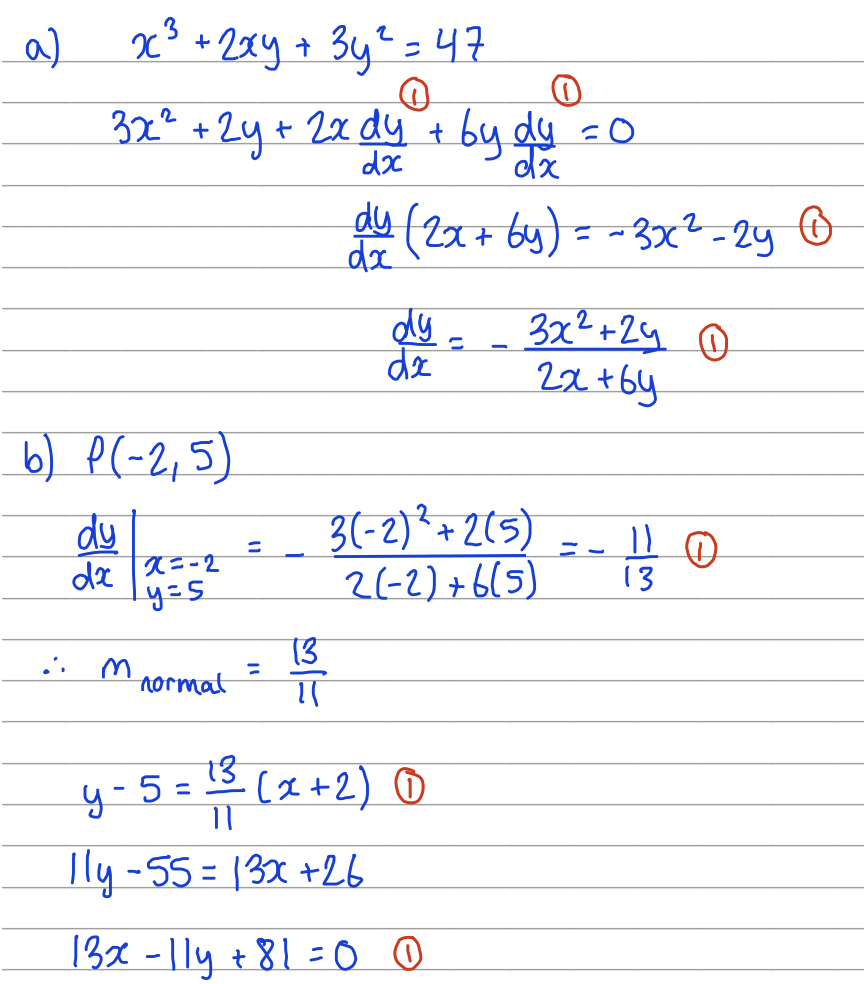 a) x³ + 2xy + 3y² = 47
3x² + 2y + 2x dy/dx ① + 6y dy/dx ① = 0
dy/dx (2x + 6y) = -3x² - 2y ①
dy/dx = - (3x² + 2y)/(2x + 6y) ①
b) P(-2, 5)
dy/dx | x=-2 y=5 = - (3(-2)² + 2(5))/(2(-2) + 6(5)) = - 11/13 ①
∴ m normal = 13/11
y - 5 = 13/11 (x + 2) ①
11y - 55 = 13x + 26
13x - 11y + 81 = 0 ①